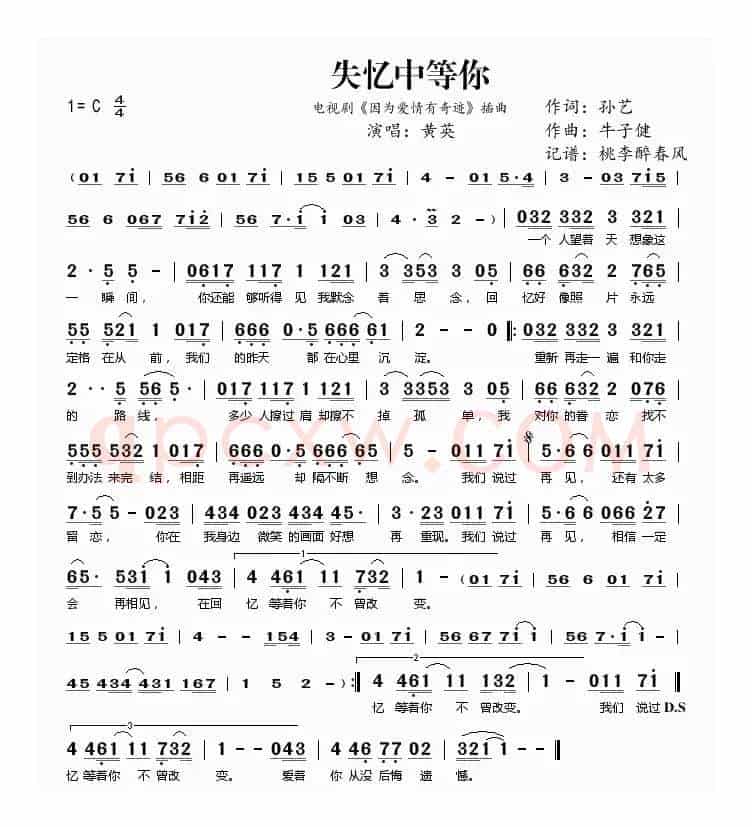 失忆中等你
1= C 4/4
电视剧《因为爱情有奇迹》插曲
作词：孙艺
演唱：黄英
作曲：牛子健
记谱：桃李醉春风
( 01 7i | 56 6 01 7i | 15 5 01 7i | 4 - 01 5·4 | 3 - 03 7i5 |
56 6 067 7i2 | 56 7·i i 03 | 4 · 3 2 - ) | 032 332 3 321 |
一个 人望着 天 想象这
2 · 5 5 - | 0617 117 1 121 | 3 353 3 05 | 66 632 2 765 |
一 瞬间， 你还能 够听得 见 我默念 着 思 念， 回 忆好 像照 片 永远
55 521 1 017 | 666 0·5 666 61 | 2 - - ‖: 032 332 3 321 |
定格 在从 前， 我们 的昨天 都 在心里 沉 淀。 重新 再走一 遍 和你走
2 · · 5 56 5 · | 017 117 1 121 | 3 3353 3 05 | 66 632 2 076 |
的 路 线， 多少 人擦过 肩 却擦不 掉 孤 单， 我 对你 的眷 恋 找不
555 532 1 017 | 666 0·5 666 561 | 5 - 011 7i | 5·6 6 011 7i |
到办法 来完 结， 相距 再遥远 却 隔不断 想 念。 我们 说过 再 见， 还有 太多
7·5 5 - 023 | 434 0434 434 45 | 3 · 23 011 7i | 5·6 6 066 27 |
留 恋， 你在 我身边 微笑 的画面 好想 再 重现。 我们 说过 再 见， 相信 一定
1
65· 531 1 043 | 4 461 11 732 | 1 - (01 7i | 56 6 01 7i |
会 再相见， 在回 忆 等着你 不 曾改 变。
15 5 01 7i | 4 - - 154 | 3 - 01 7i | 56 67 7i i5 | 56 7·i i - |
2
45 434 431 167 | 1 5 2 - ) :‖ 4 461 11 132 | 1 - 011 7i ‖
忆 等着你 不 曾改变。 我们 说过 D.S
3
4 461 11 732 | 1 - - 043 | 4 46 77 02 | 321 1 - ‖
忆 等着你 不 曾改 变。 爱着 你 从没 后悔 遗 憾。